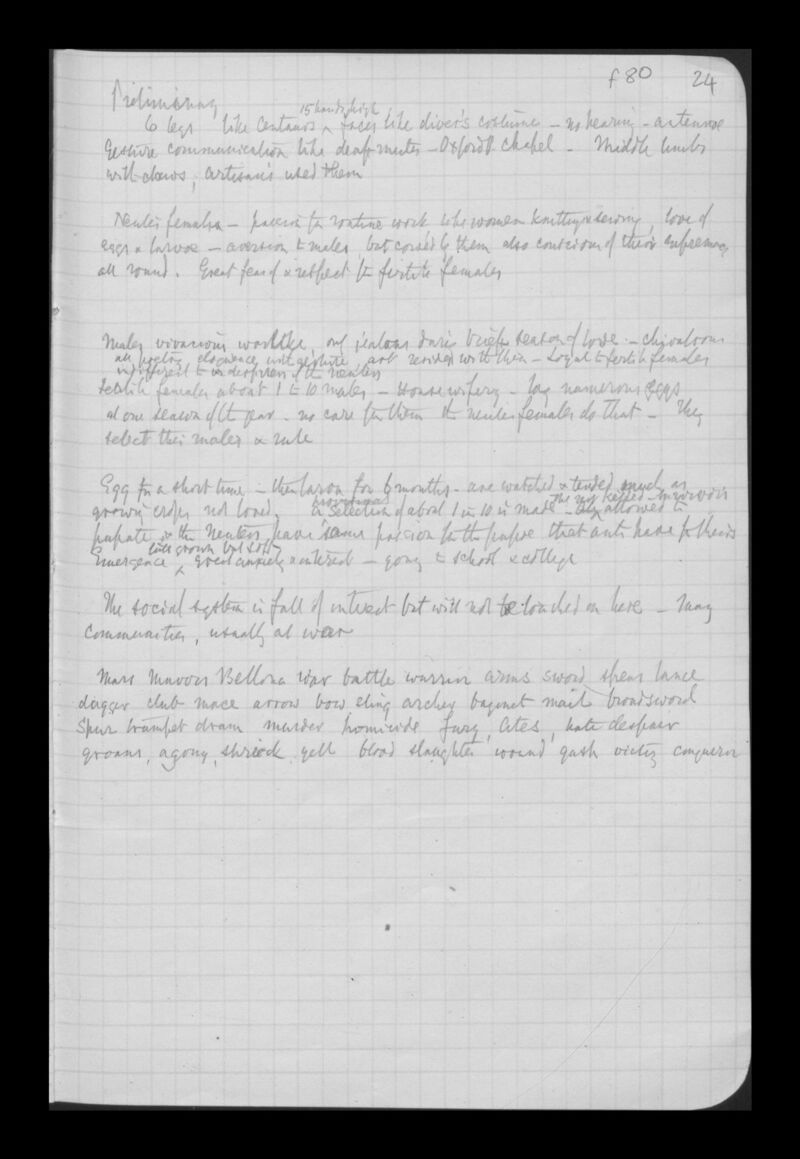 f 80 24
Preliminary
15 hands high
6 legs like Centaurs ^ faces like diver's costume – no hearing – antennae
Gesture communication like deaf mutes – Oxford chapel – Middle limbs
with claws, artisans used them
Neuter females – passion for routine work like women knitting & sewing, love of
eggs & larvae – aversion to males, but consider them also conscious of their supremacy
all round. Great fear of & respect for fertile females
Males vivacious warlike, only jealous during brief season of love – chivalrous
all poetry eloquence with gesture art resided with them – Loyal to fertile females
indifferent to the neuters
Fertile females about 1 to 10 males – Housewifery – lay numerous eggs
at one season of the year – no care for them the neuter females do that – They
select their males & rule
Egg for a short time – then larva for 6 months – are watched & tended much as
growing crops not loved. a selection of about 1 in 10 is made – the rest killed – survivors
allowed to
pupate & the Neuters have same passion for the pupae that ants have for theirs
full grown but soft
Emergence ^ great anxiety & interest – going to school & college
The social system is full of interest but will not be touched on here – Many
communities, usually at war
Mars Mavors Bellona war battle warrior arms sword spear lance
dagger club mace arrow bow sling archer bayonet mail broadsword
Spur trumpet drum murder homicide fury, Ates, hate despair
groans, agony, shriek, yell blood slaughter wound gash victory conqueror